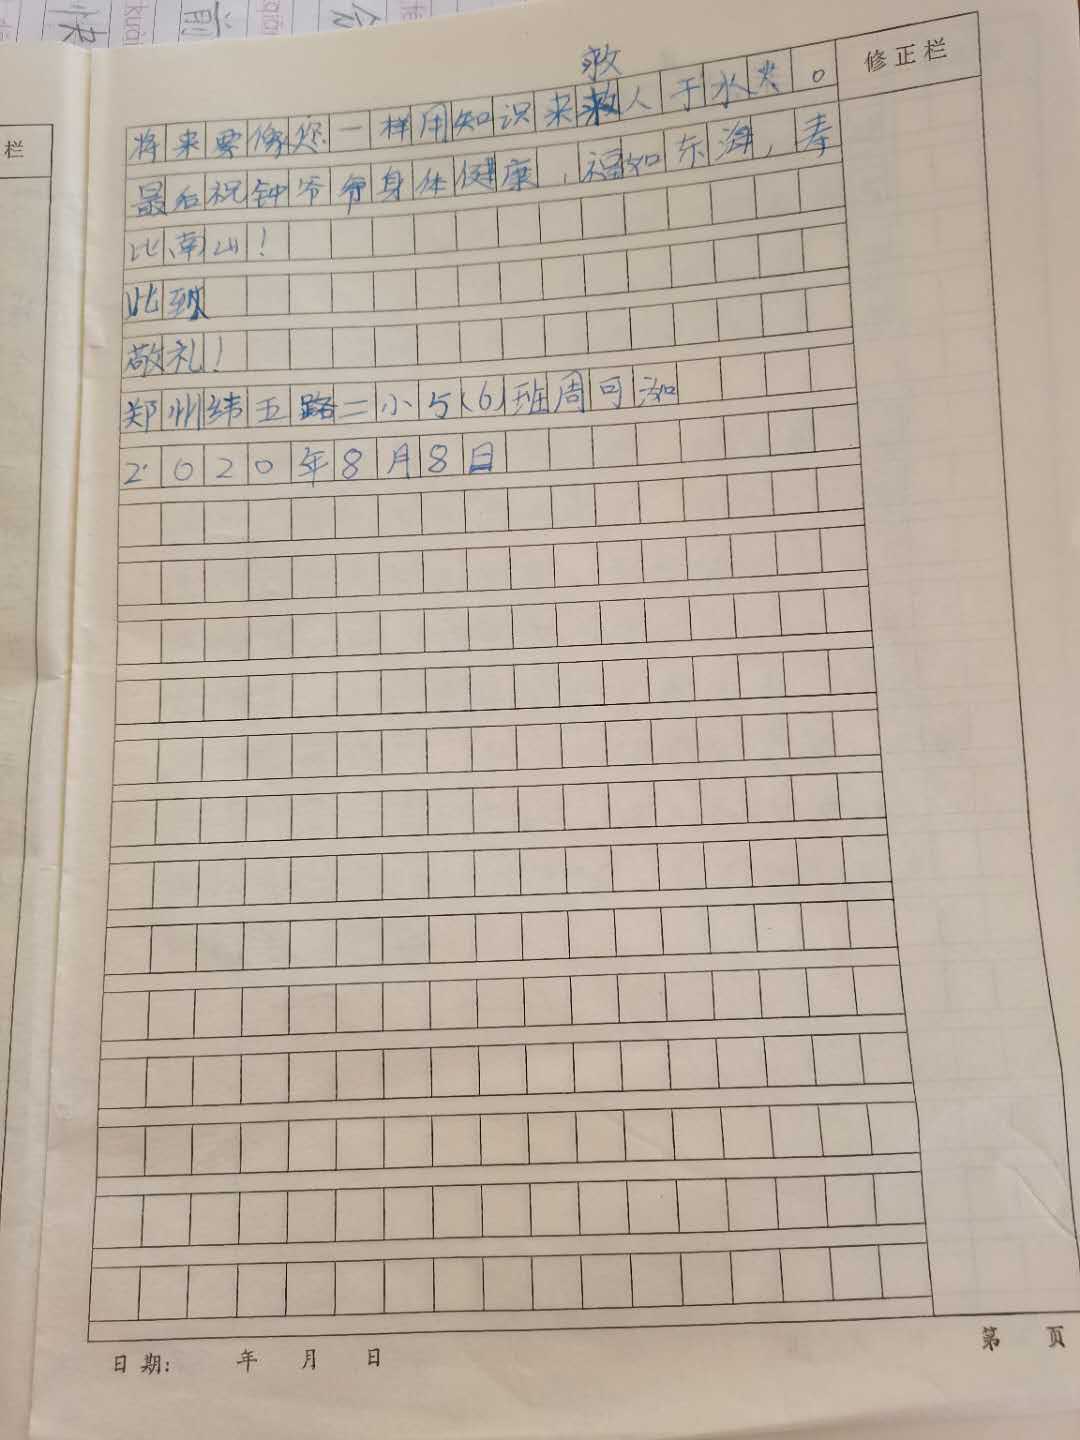 快 kuài 前 qián
栏
修正栏
救
将来要像您一样用知识来救人于水火。
最后祝钟爷爷身体健康，福如东海，寿
比南山！
此致
敬礼！
郑州纬五路二小5(6)班周可
2020年8月8日
日期: 年 月 日
第 页